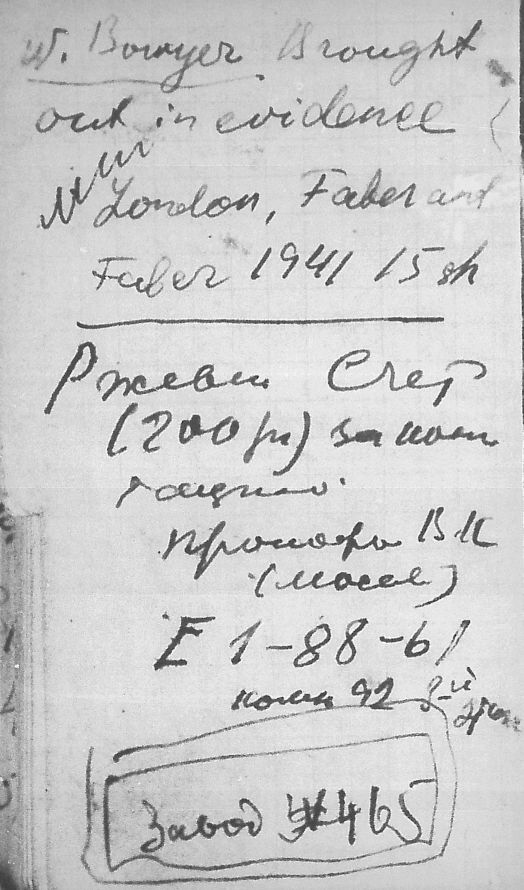 W. Bowyer Brought
out in evidence
London, Faber and
Faber 1941 15 sh
Ржевин Счет
(200 р) за конс
тацию
Прокофьев ВК
(Москв)
Е 1-88-61
комн 92 2-й этаж
Завод № 465